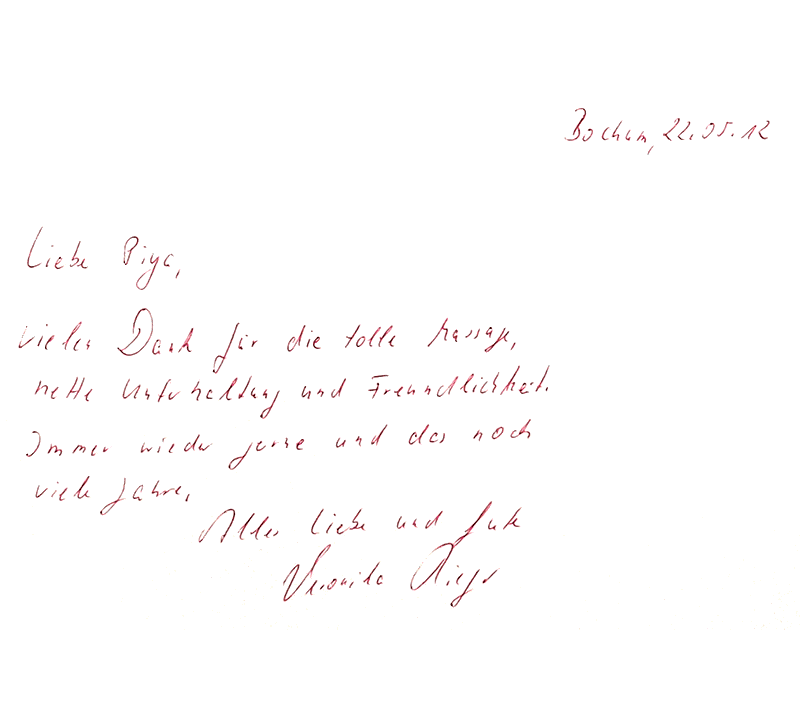 Bochum, 22.05.12
Liebe Piya,
vielen Dank für die tolle Massage,
nette Unterhaltung und Freundlichkeit.
Immer wieder gerne und das noch
viele Jahre,
Alles Liebe und Gute
Veronika